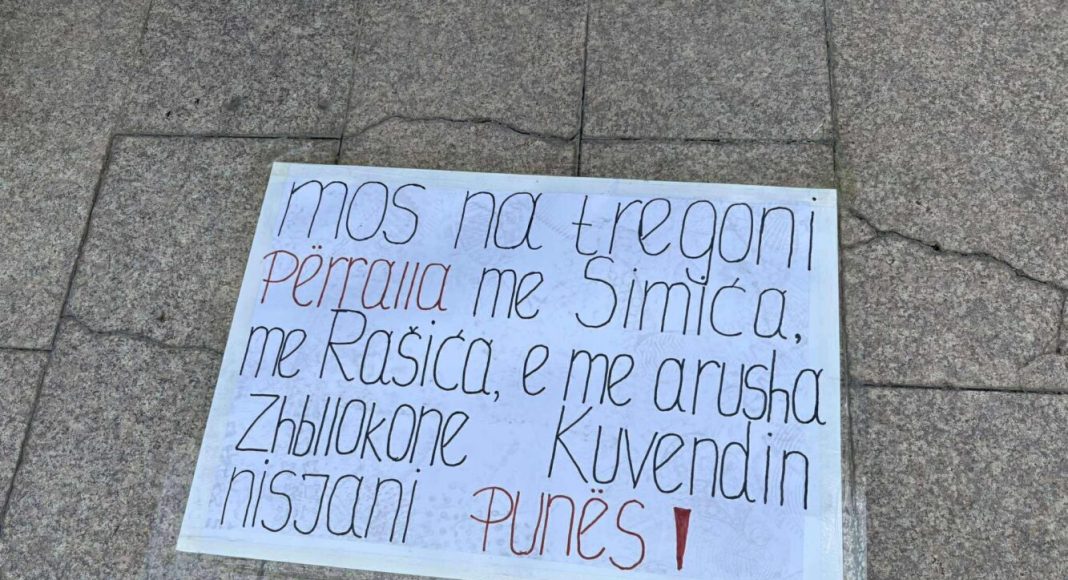 mos na tregoni
përralla me Simića,
me Rašića, e me arusha
Zhbllokone Kuvendin
nisjani punës!